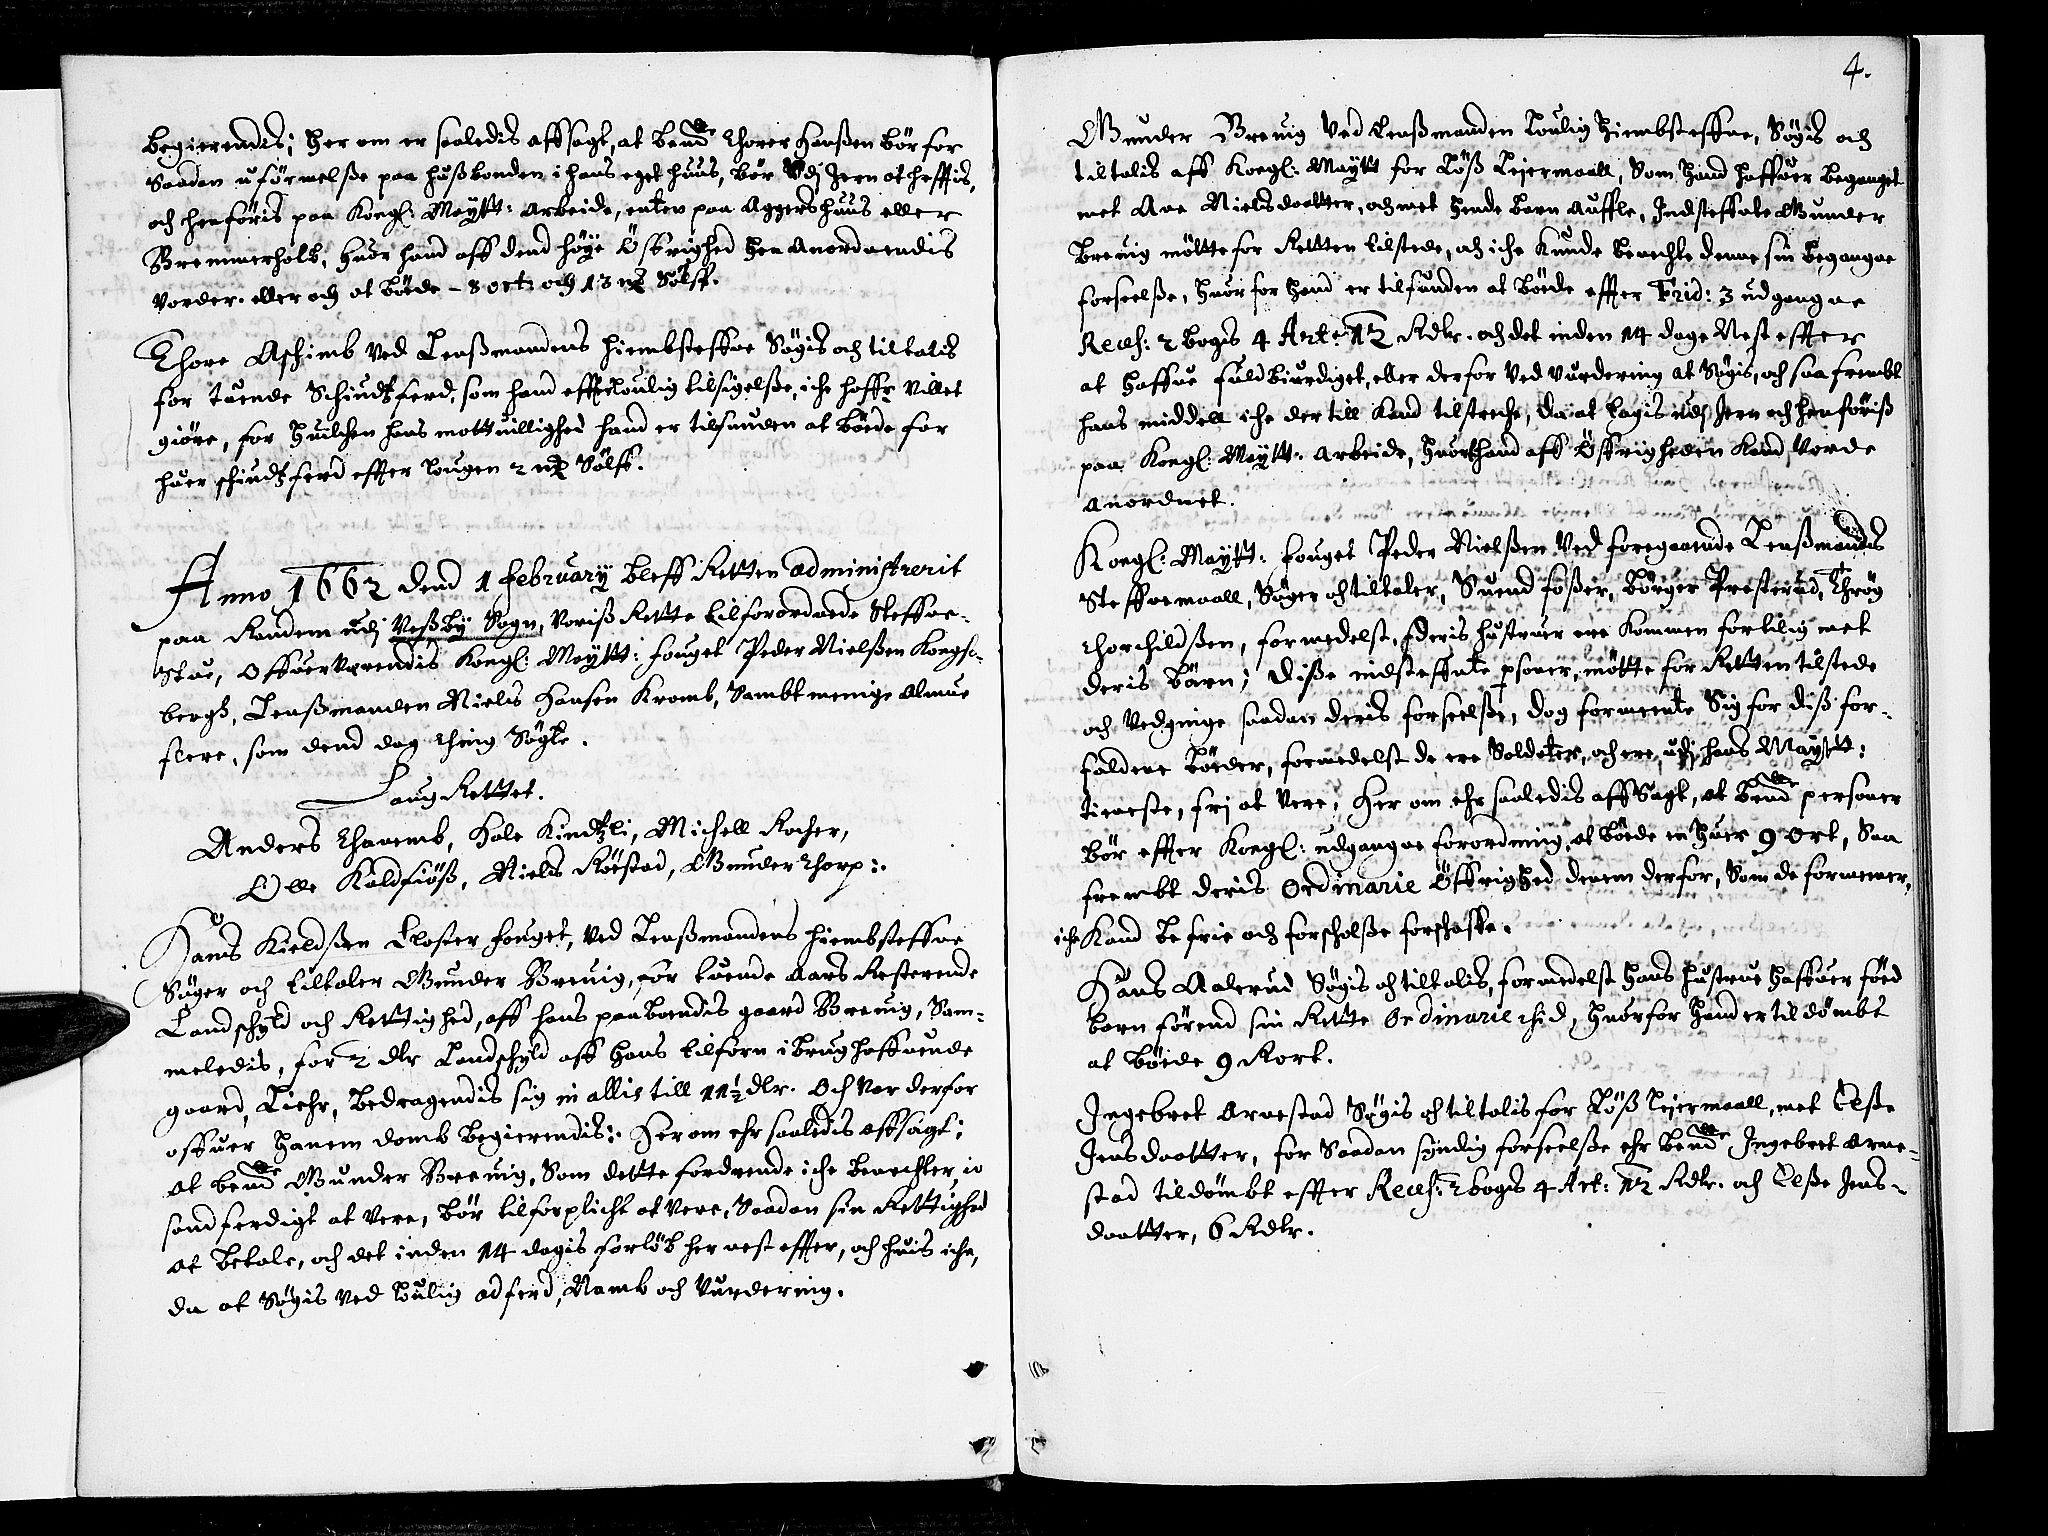 begierendis; Her om er saaledis affsagt, at bemelte Thorer Hanßen bör for
Saadan uförmelße paa Hußbonden i hans eget huus, bör Udj Jern at hefftis,
och henföris paa Kongl: Maytt: Arbeide, enten paa Aggershuus eller
Bremmerholb, Huor hand aff dend höye Öfrighed hen Anordnendis
Vorder. eller och at böede – 8 ort: och 13 Sölff.
Thore Aschimb Ved Lenßmandens Hiembsteffne Söges och tiltalis
for tuende Schiudtzferd, som hand effter loulig tilsigelße, iche haffr Villet
giöre, for Huilchen hans mottuillighed hand er tilfunden at böede for
huer schiudtzferd effter Lougen 2 Sölff.
Anno 1662 dend 1 february bleff Retten administrerit
paa Randem udj Veßby Sogn, Voriß Rette tilforordnede Steffne-
Stue, Offueruerendis Kongl: Maytt: fouget Peder Nielßen Kongs-
bergh, Lenßmanden Niels Hansen Kromb, Sambt menige Almue
flere, som dend dag thing Sögte.
Laug Rettet.
Anders Thanemb, Hale Kindtzli, Michell Rocher,
Olle Kaldfiöß, Niels Röestad, Gunder Thorp:
Hans Kieldßen Closter fouget, Ved Lenßmandens Hiembsteffne
Söger och tiltaler Gunder Breuig, for tuende Aars Resterende
Landschyld och Rettighed, aff hans paaboendis gaard Breuig, Sam-
meledis, for 2 dlr Landschyld aff hans tilforn i brug haffuende
gaard, Liehr, bedragendis sig in allis till 11½ dlr. Och Var derfor
offuer hanem domb begierendis: Her om ehr saaledis affsagt;
at bemelte Gunder Breuig, Som dette fordrende iche benechter, io
sandferdigt at Vere, bör tilforplicht at Vere, Saadan sin Rettighed
at betale, och det inden 14 dagis forlöb her nest effter, och huis iche,
da at Sögis Ved loulig adferd, Namb och Vurdering.
4.
Gunder Breuig Ved Lenßmanden loulig Hiembsteffne, Sögis och
tiltalis aff Kongl: Maytt for Löß Leiermaall, Som hand haffuer beganget
met Ane Nielsdaatter, och met hende barn Aufflet, Indsteffnte Gunder
Breuig mötte for Retten tilstede, och iche Kunde benechte denne sin begangne
forseelße, Huor for hand er tilfunden at böede effter Frid: 3 udgangne
Recess: 2 bogis 4 Art: 12 Rdlr. och det inden 14 dage Nest effter
at haffue fuldbiurdiget, eller derfor Ved Vurdering at Sögis, och saa frembt
hans middell iche dertill Kand tilstreche, da at lagis udj Jern och henföriß
paa Kongl: Maytt: Arbeide, Huorthand aff Öffrigheden Kand Vorde
Anordnet.
Kongl: Maytt: fouget Peder Nielßen Ved foregaaende Lenßmands
Steffnemaall, Söger och tiltaler, Suend foßer, Börger Presterud, Thrög
Thorchildßen, formedelst, deris hustruer ere Kommen fortilig met
deris börn; Diße indsteffnte psoner, mötte for Retten tilstede
och Vedginge saadan deris forseelße, dog formeente Sig for diß for-
faldene böeder, formedelst de ere Soldater, och ere udj hans Maytt:
tieneste, frj at Vere; Her om ehr saaledis affsagt, at bemelte personer
bör effter Kongl: udgangne forordning, at böede en Huer 9 ort, Saa
frembt deris Ordinarie Öffrighed denem derfor, Som de formeener,
iche Kand befrie och forscholße forschaffe.
Hans Aalerud Sögis och tiltalis, formedelst hans hustrue haffuer föed
barn förend sin Rette Ordinarie thid, Huorfor hand er tildömbt
at böede 9 Rort.
Ingebret Arnestad Sögis och tiltalis for Löß leiermaall, met Elße
Jensdaatter, for Saadan syndig forseelße ehr bemelte Ingebret Arne-
stad tildömbt effter Recess: 2 bogis 4 Art: 12 Rdlr. och Elße Jens-
daatter, 6 Rdlr.